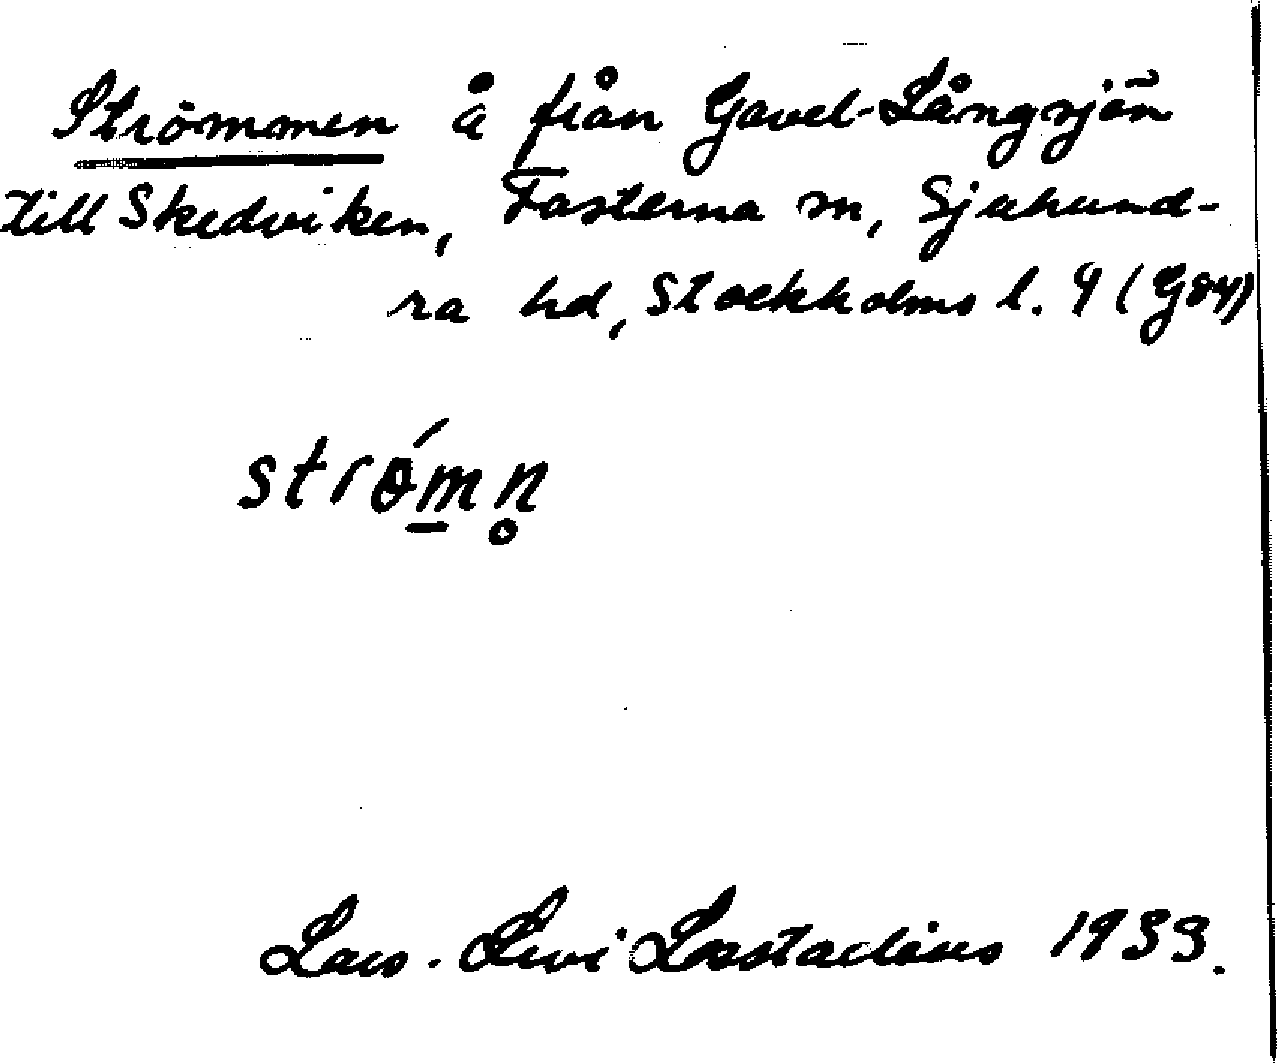 Strömmen å från Gavel-Långsjön
till Skedviken, Fasterna sn, Sjuhund-
ra hd, Stockholms l. 4 (G84)
strö́m̲n̥
Lars-Levi Læstadius 1933.